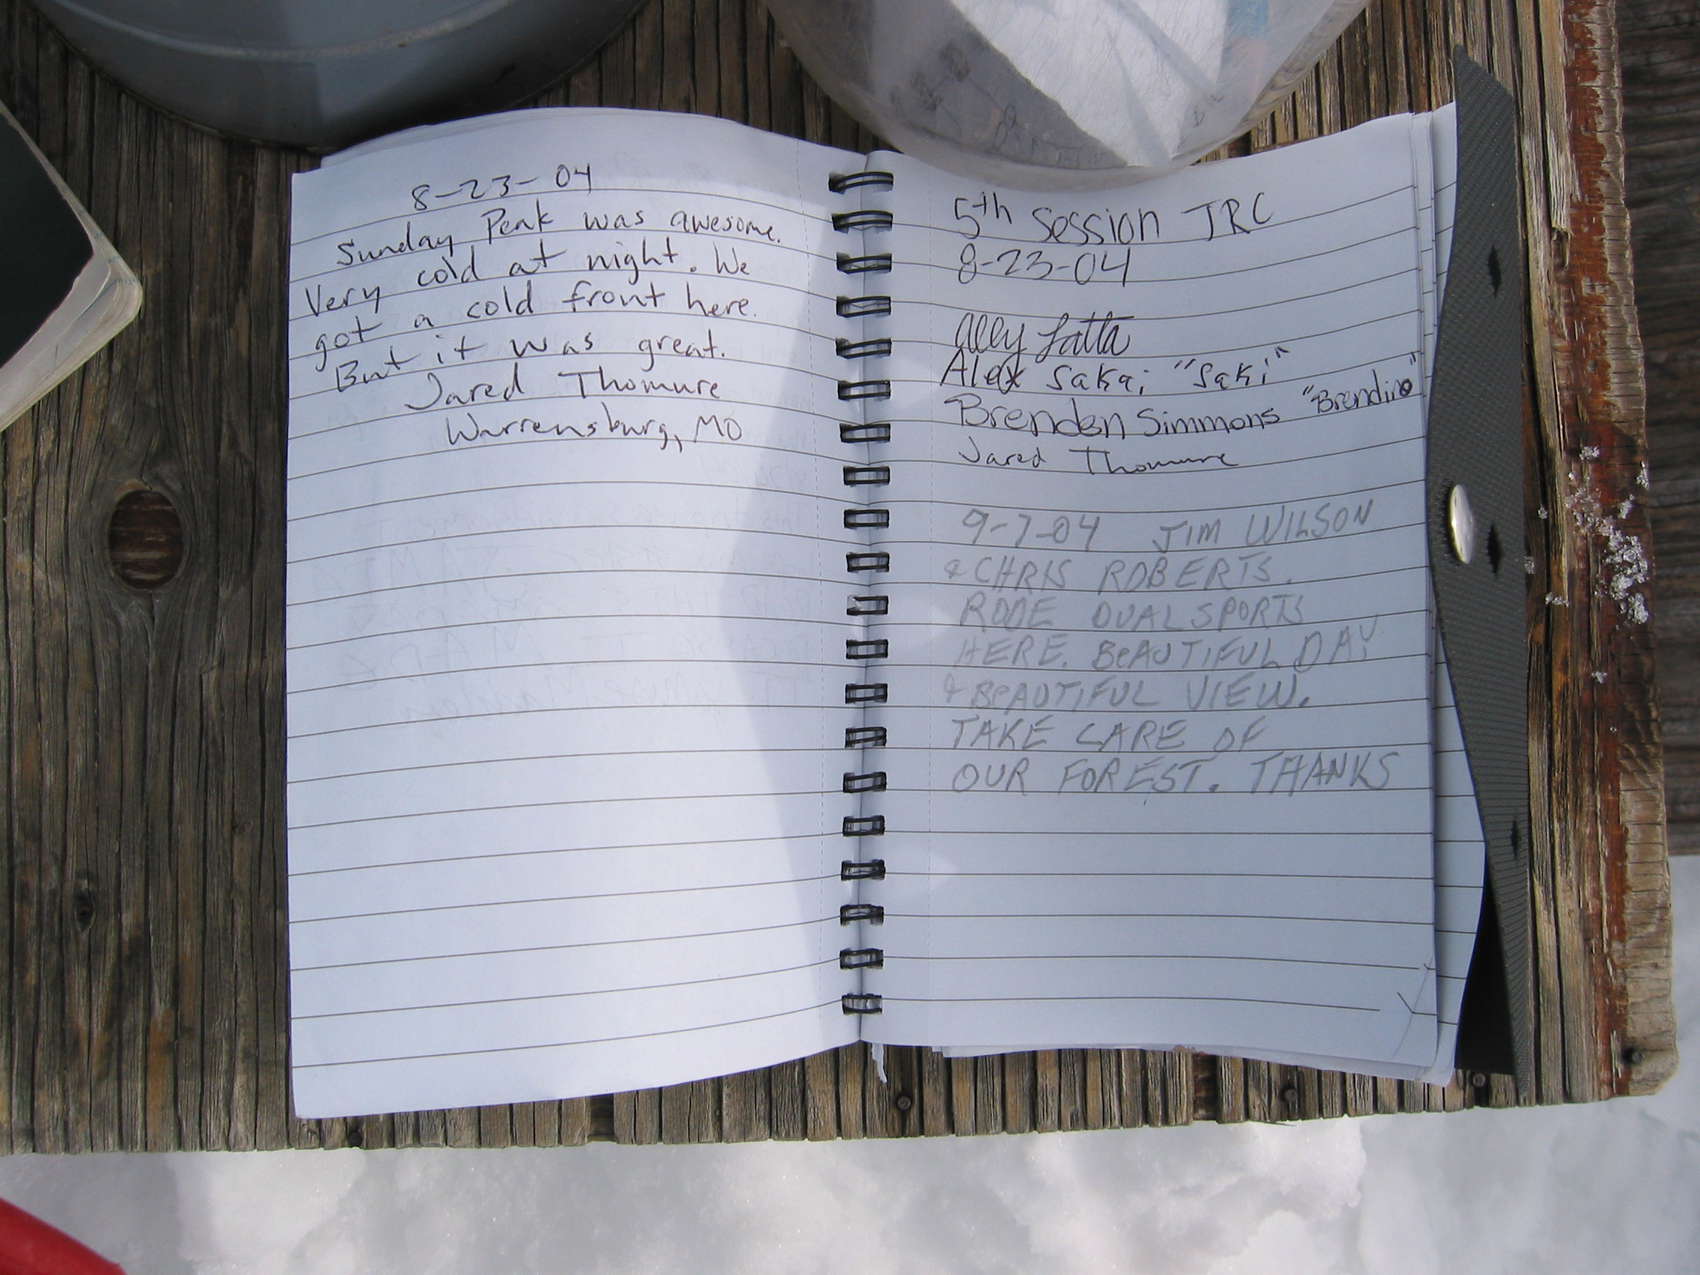 8-23-04
Sunday Peak was awesome.
Very cold at night. We
got a cold front here.
But it was great.
Jared Thomure
Warrensburg, MO
5th Session JRC
8-23-04
Ally Latta
Alex Sakai "Saki"
Brenden Simmons "Brendino"
Jared Thomure
9-7-04 JIM WILSON
& CHRIS ROBERTS.
RODE DUAL SPORTS
HERE. BEAUTIFUL DAY
& BEAUTIFUL VIEW.
TAKE CARE OF
OUR FOREST. THANKS